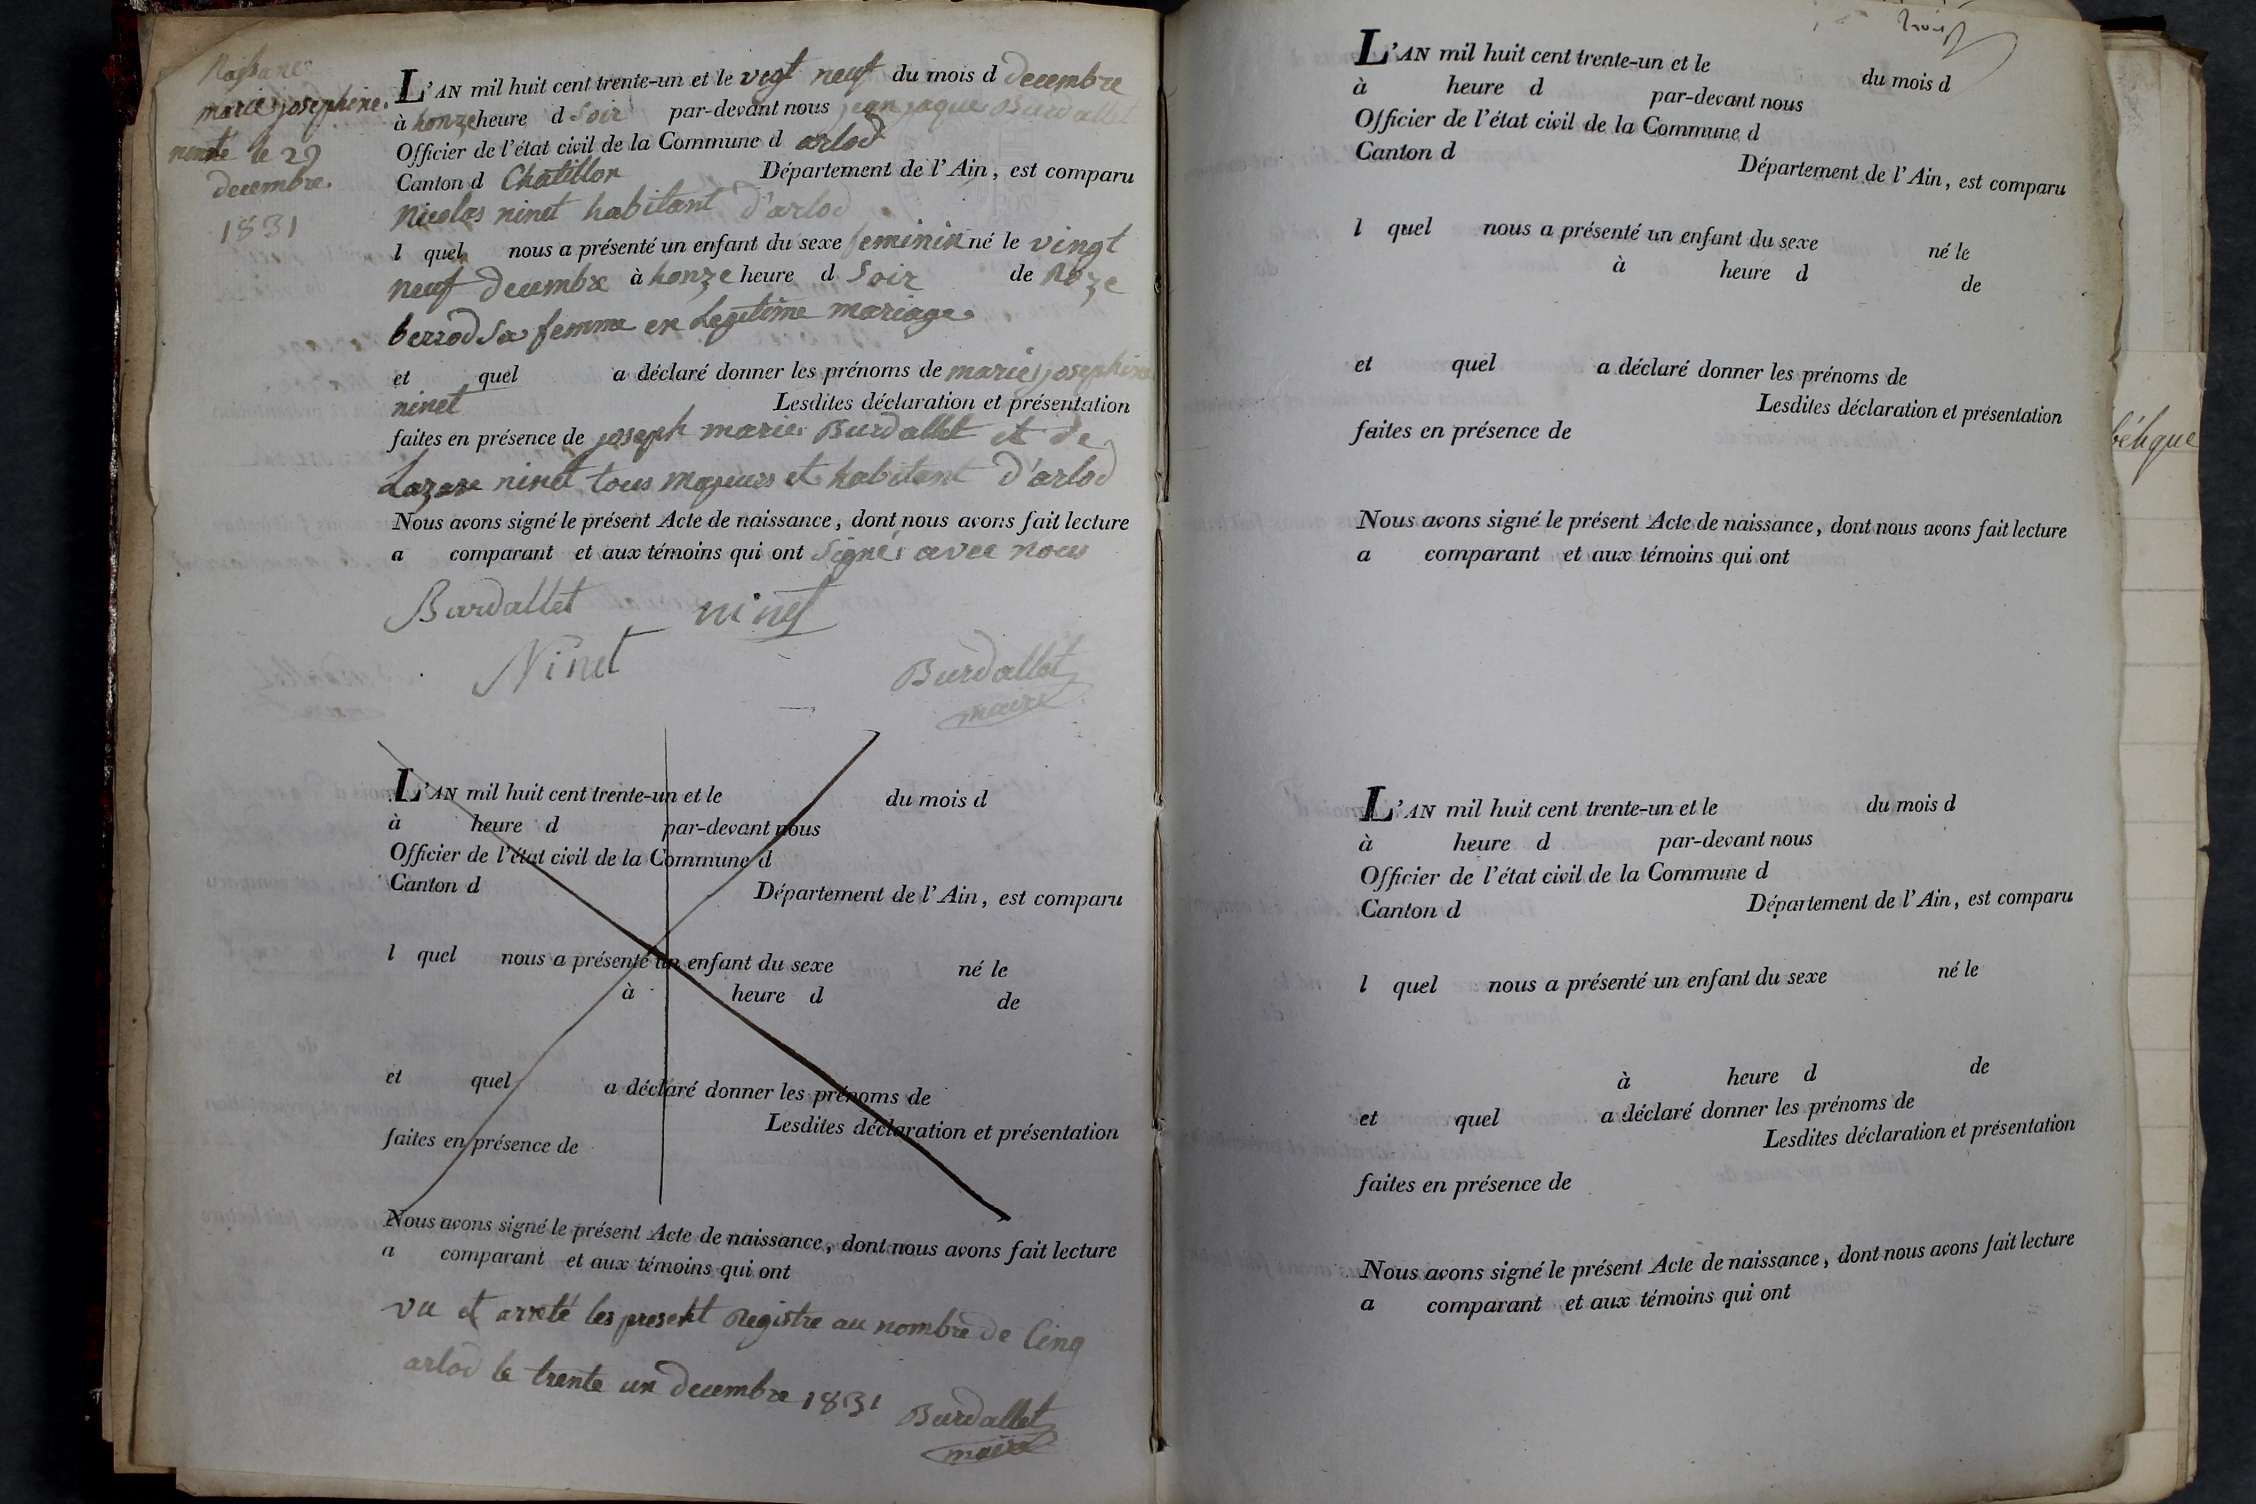 Naissance
marie josephine
ninet le 29
decembre.
1831
L'AN mil huit cent trente-un et le vegt neuf du mois d decembre
à honze heure d Soir par-devant nous jean jaques Burdallet
Officier de l'état civil de la Commune d arlod
Canton d Chatillon Département de l'Ain, est comparu
Nicolas ninet habitant d'arlod
l quel nous a présenté un enfant du sexe feminin né le vingt
neuf decembre à honze heure d Soir de Roze
berrod Sa femme en Legitime mariage
et quel a déclaré donner les prénoms de marie josephine
ninet Lesdites déclaration et présentation
faites en présence de joseph marie Burdallet et de
Lazare ninet tous majeurs et habitant d'arlod
Nous avons signé le présent Acte de naissance, dont nous avons fait lecture
a comparant et aux témoins qui ont Signé avec nous
Burdallet ninet
Ninet
Burdallet
maire
L'AN mil huit cent trente-un et le du mois d
à heure d par-devant nous
Officier de l'état civil de la Commune d
Canton d Département de l'Ain, est comparu
l quel nous a présenté un enfant du sexe né le
à heure d de
et quel a déclaré donner les prénoms de
Lesdites déclaration et présentation
faites en présence de
Nous avons signé le présent Acte de naissance, dont nous avons fait lecture
a comparant et aux témoins qui ont
vu et arreté les present Registre au nombre de Cinq
arlod le trente un decembre 1831
Burdallet
maire
trois
L'AN mil huit cent trente-un et le du mois d
à heure d par-devant nous
Officier de l'état civil de la Commune d
Canton d Département de l'Ain, est comparu
l quel nous a présenté un enfant du sexe né le
à heure d de
et quel a déclaré donner les prénoms de
Lesdites déclaration et présentation
faites en présence de
Nous avons signé le présent Acte de naissance, dont nous avons fait lecture
a comparant et aux témoins qui ont
L'AN mil huit cent trente-un et le du mois d
à heure d par-devant nous
Officier de l'état civil de la Commune d
Canton d Département de l'Ain, est comparu
l quel nous a présenté un enfant du sexe né le
à heure d de
et quel a déclaré donner les prénoms de
Lesdites déclaration et présentation
faites en présence de
Nous avons signé le présent Acte de naissance, dont nous avons fait lecture
a comparant et aux témoins qui ont
bétique